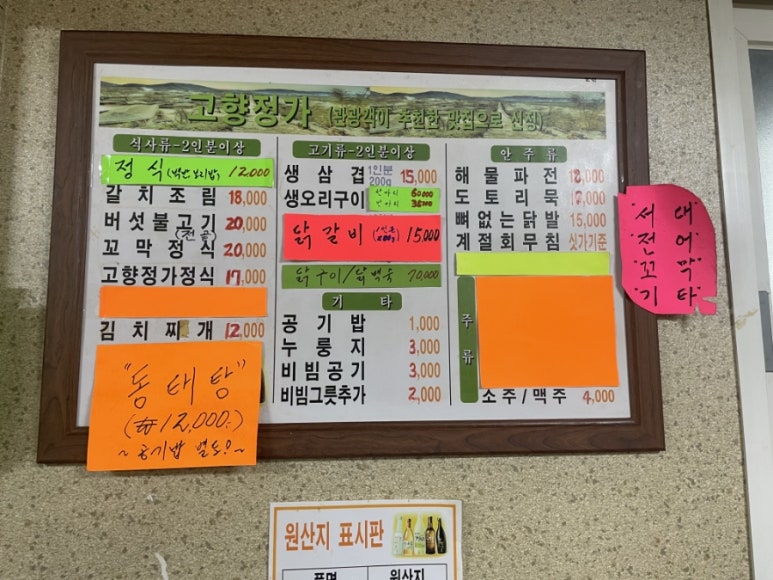 고향정가 (관광객이 추천한 맛집으로 선정)
식사류-2인분이상
정식 12,000
갈치조림 18,000
버섯불고기 20,000
(전골)
꼬막정식 20,000
고향정가정식 17,000
김치찌개 12,000
"동태탕"
(₩12,000.)
~공기밥 별도~
고기류-2인분이상
생삼겹 1인분 200g 15,000
생오리구이 한마리 60,000
반마리 35,000
닭갈비 15,000
닭구이/닭백숙 70,000
기타
공기밥 1,000
누룽지 3,000
비빔공기 3,000
비빔그릇추가 2,000
안주류
해물파전 18,000
도토리묵
뼈없는닭발 15,000
계절회무침 싯가기준
주류
소주/맥주 4,000
"서대"
"전어"
"꼬막"
"기타"
원산지 표시판
품명 원산지